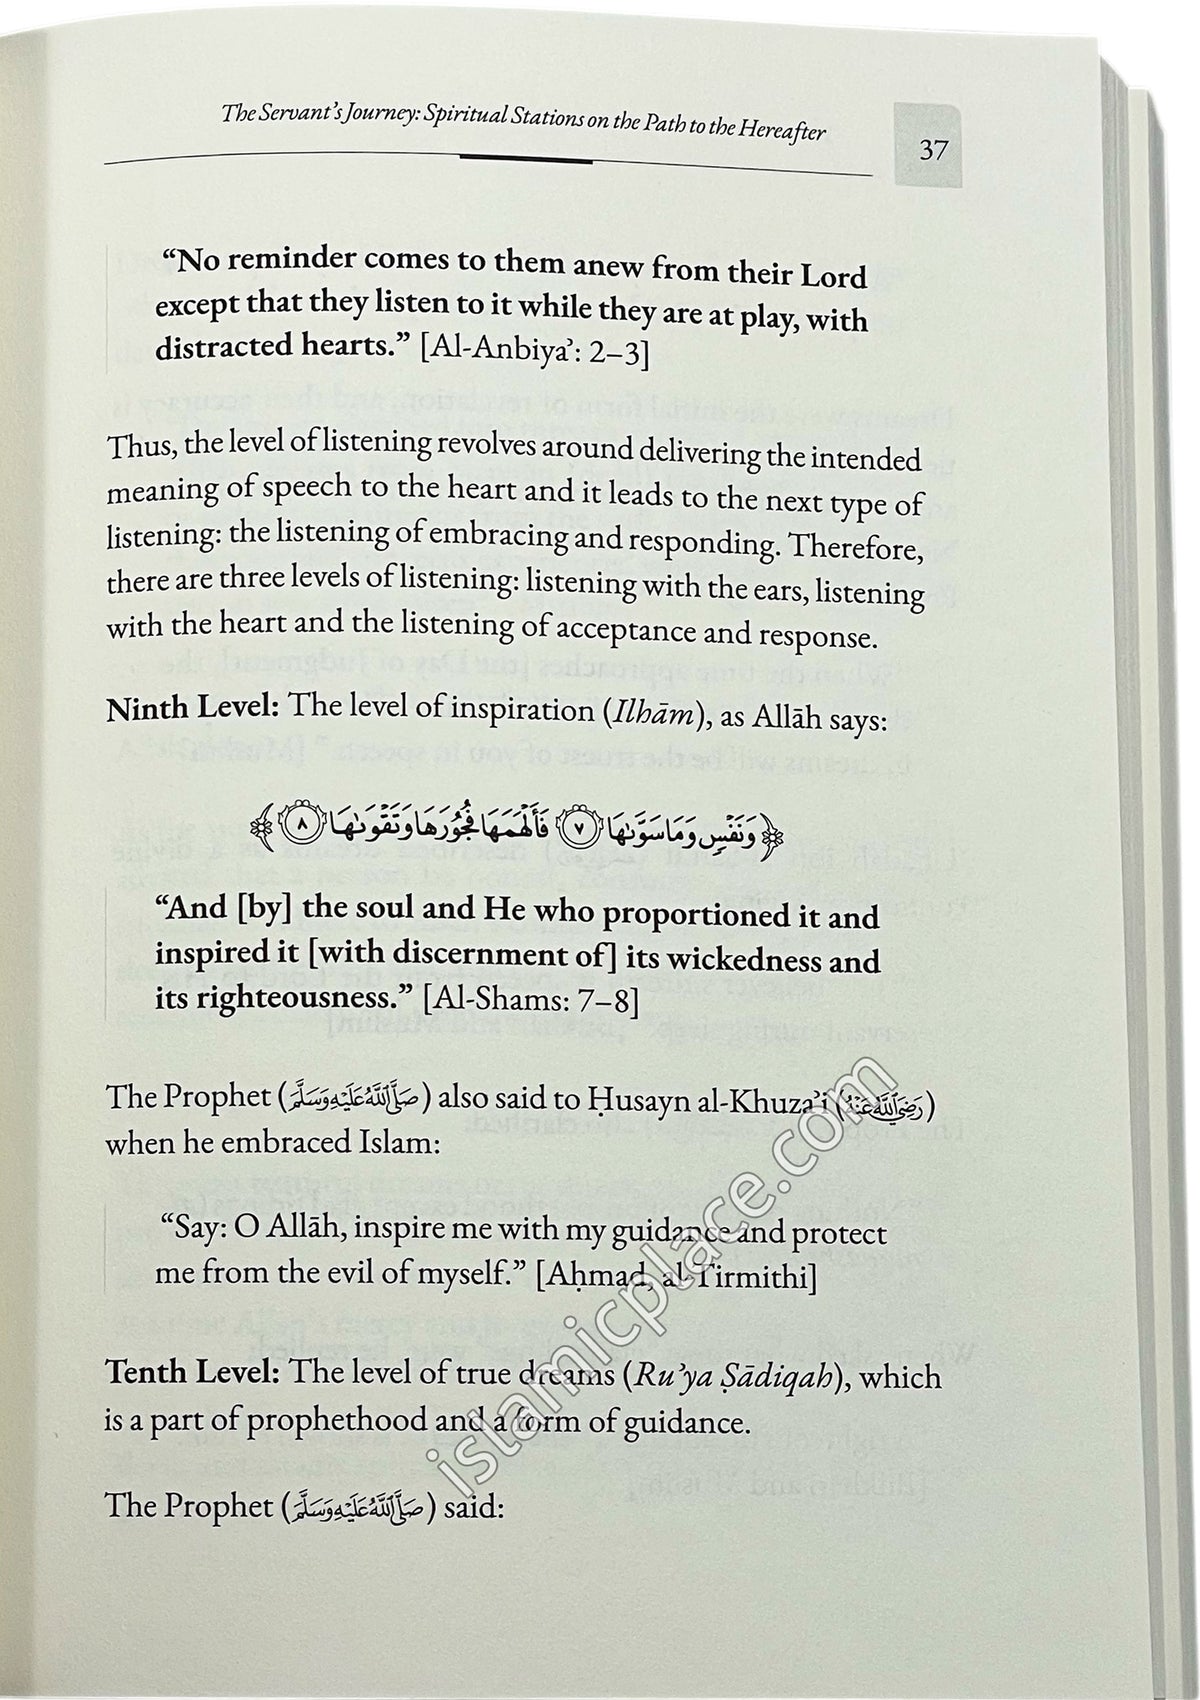 The Servant's Journey: Spiritual Stations on the Path to the Hereafter
37
“No reminder comes to them anew from their Lord
except that they listen to it while they are at play, with
distracted hearts.” [Al-Anbiya’: 2–3]
Thus, the level of listening revolves around delivering the intended
meaning of speech to the heart and it leads to the next type of
listening: the listening of embracing and responding. Therefore,
there are three levels of listening: listening with the ears, listening
with the heart and the listening of acceptance and response.
Ninth Level: The level of inspiration (Ilhām), as Allāh says:
﴿وَنَفْسٍ وَمَا سَوَّىٰهَا ٧ فَأَلْهَمَهَا فُجُورَهَا وَتَقْوَىٰهَا ٨﴾
“And [by] the soul and He who proportioned it and
inspired it [with discernment of] its wickedness and
its righteousness.” [Al-Shams: 7–8]
The Prophet (صَلَّى اللَّهُ عَلَيْهِ وَسَلَّمَ) also said to Ḥusayn al-Khuza’i (رَضِيَ اللَّهُ عَنْهُ)
when he embraced Islam:
“Say: O Allāh, inspire me with my guidance and protect
me from the evil of myself.” [Aḥmad, al-Tirmithi]
Tenth Level: The level of true dreams (Ru’ya Ṣādiqah), which
is a part of prophethood and a form of guidance.
The Prophet (صَلَّى اللَّهُ عَلَيْهِ وَسَلَّمَ) said:
islamicplace.com